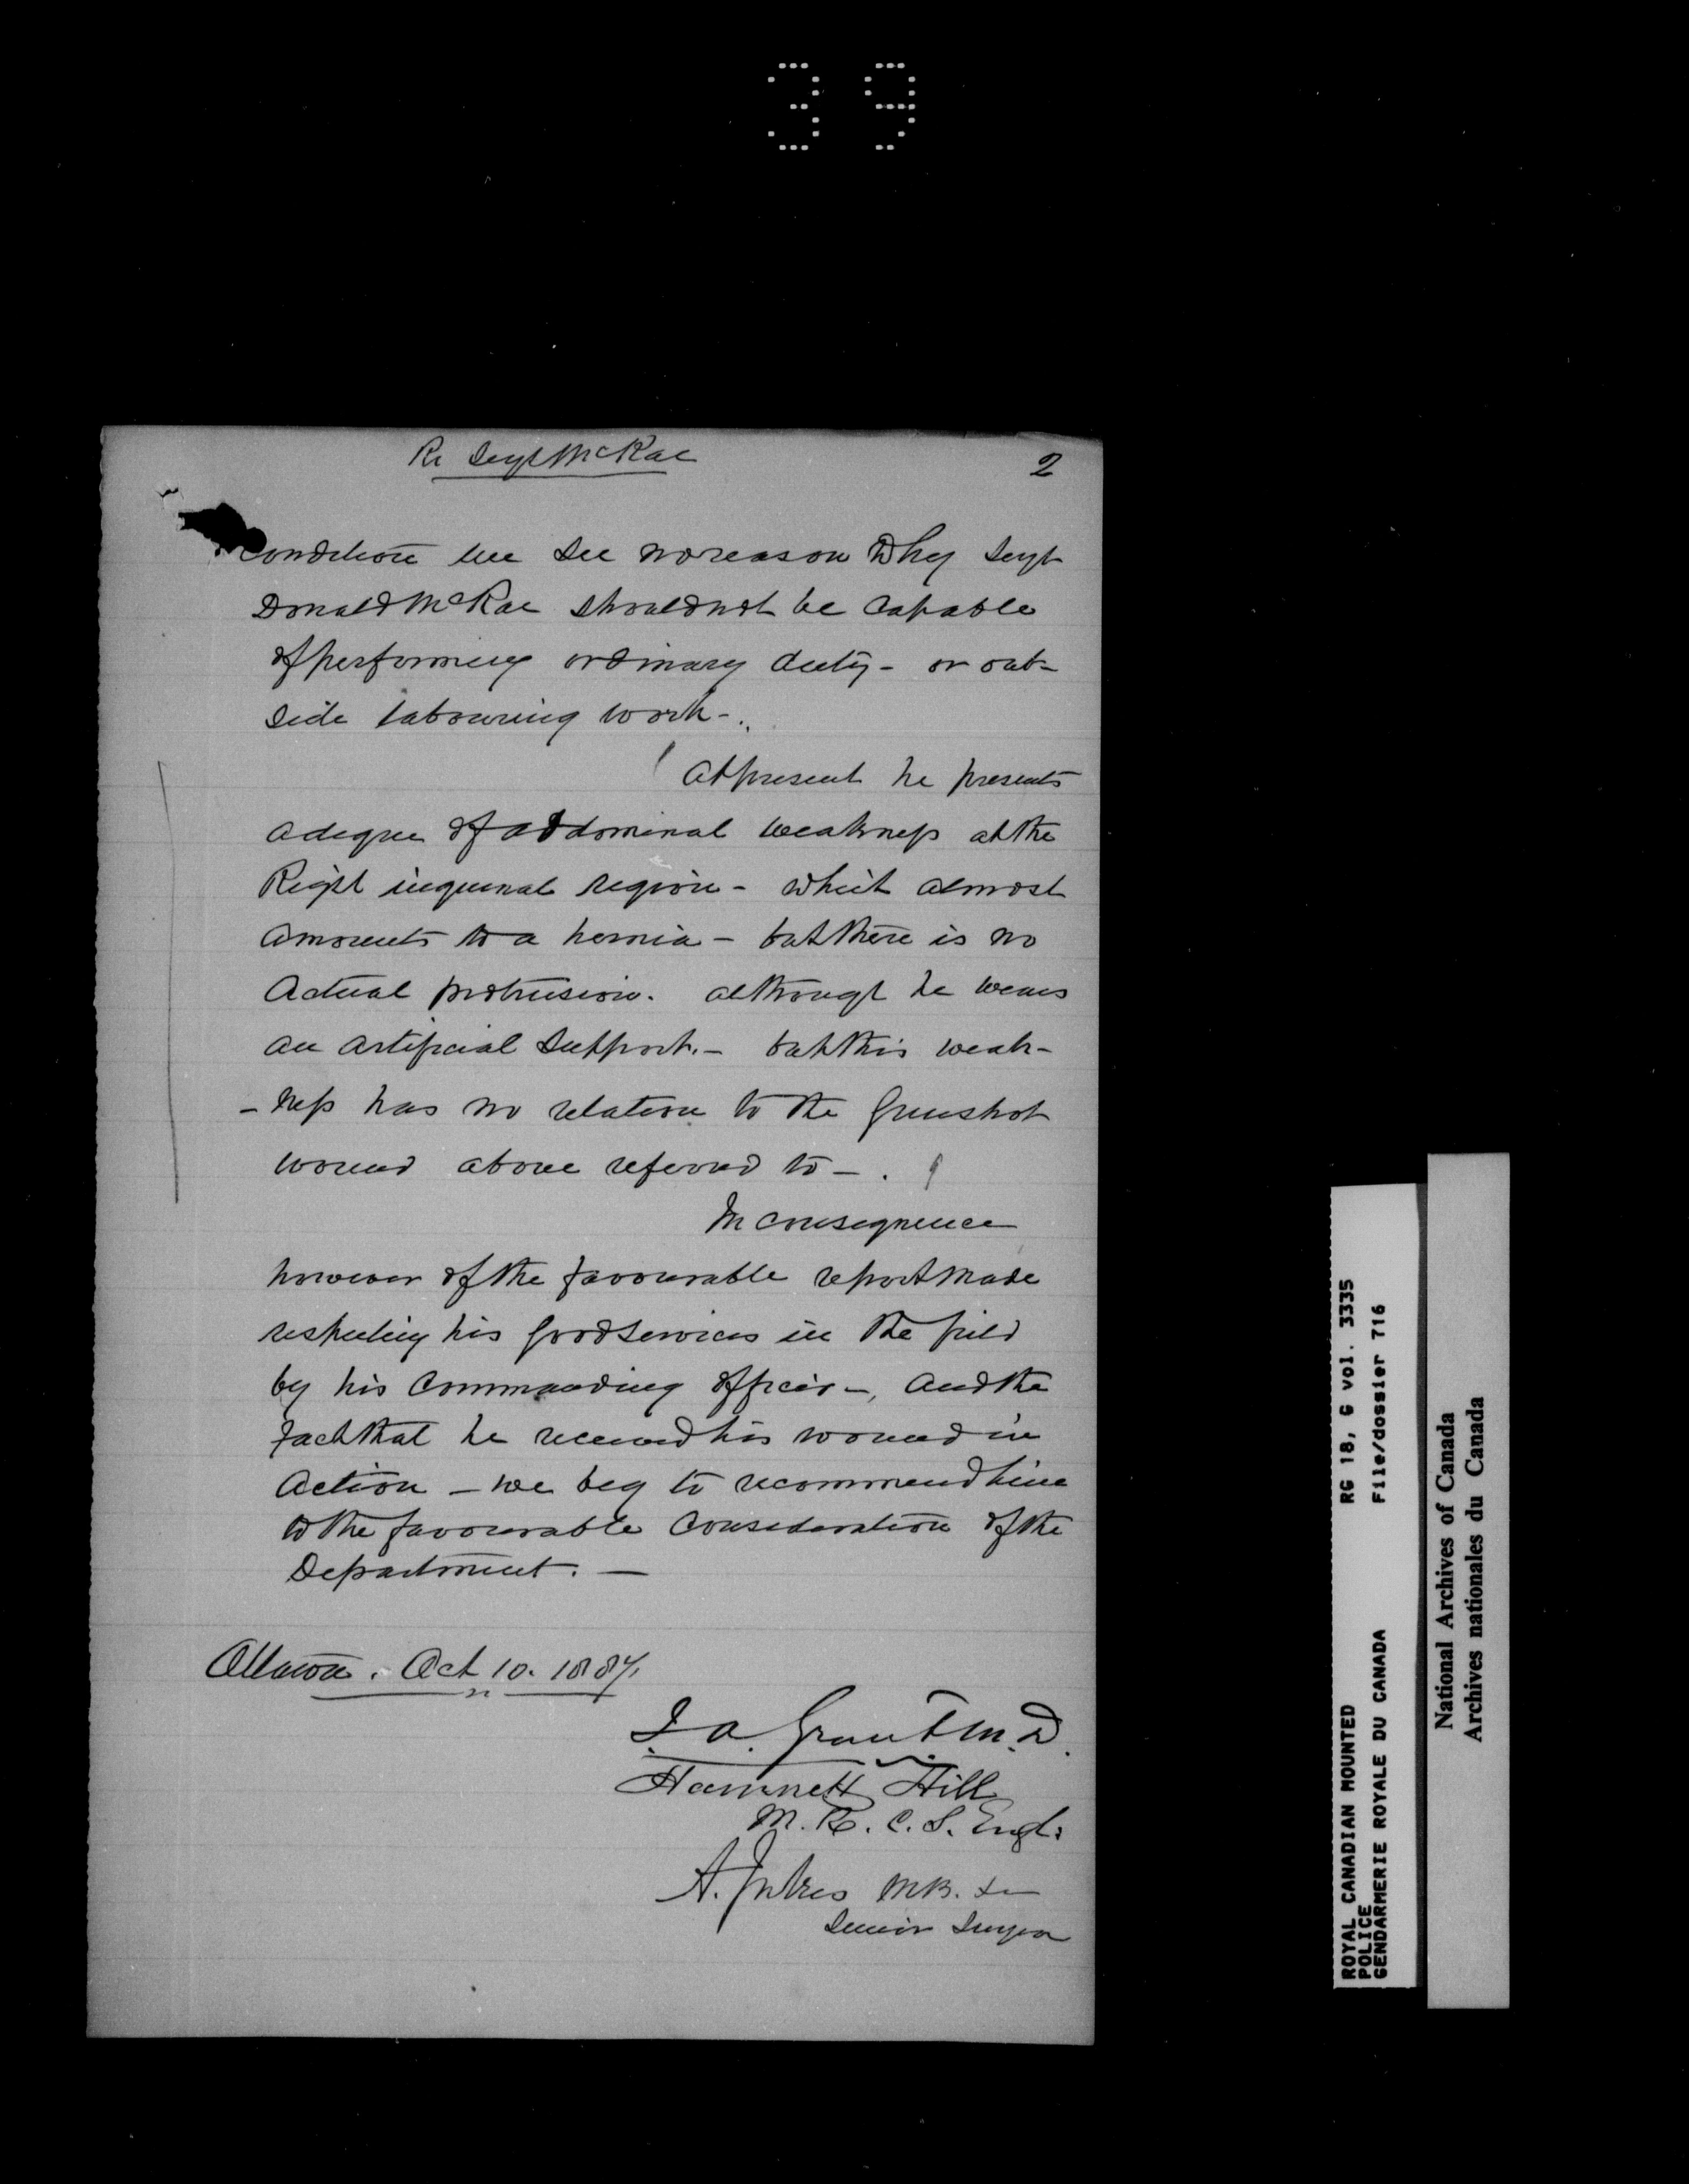 39
Re Sergt McRae
2
condition we see no reason why Sergt
Donald McRae should not be capable
of performing ordinary duty - or out-
side labouring work -.
At present he presents
a degree of abdominal weakness at the
Right inguinal region - which almost
amounts to a hernia - but there is no
actual protrusion. although he wears
an artificial support. - but this weak-
- ness has no relation to the gunshot
wound above referred to - .
In consequence
however of the favourable report made
respecting his good services in the field
by his Commanding officer -, and the
fact that he received his wound in
action - we beg to recommend him
to the favourable consideration of the
Department. -
Ottawa. Oct 10. 1887.
J. A. Grant M.D.
Hamnett Hill
M.R.C.S. Engl.
A. Jukes M.B. &c
Senior Surgeon
ROYAL CANADIAN MOUNTED RG 18, G vol. 3335
POLICE File/dossier 716
GENDARMERIE ROYALE DU CANADA
National Archives of Canada
Archives nationales du Canada